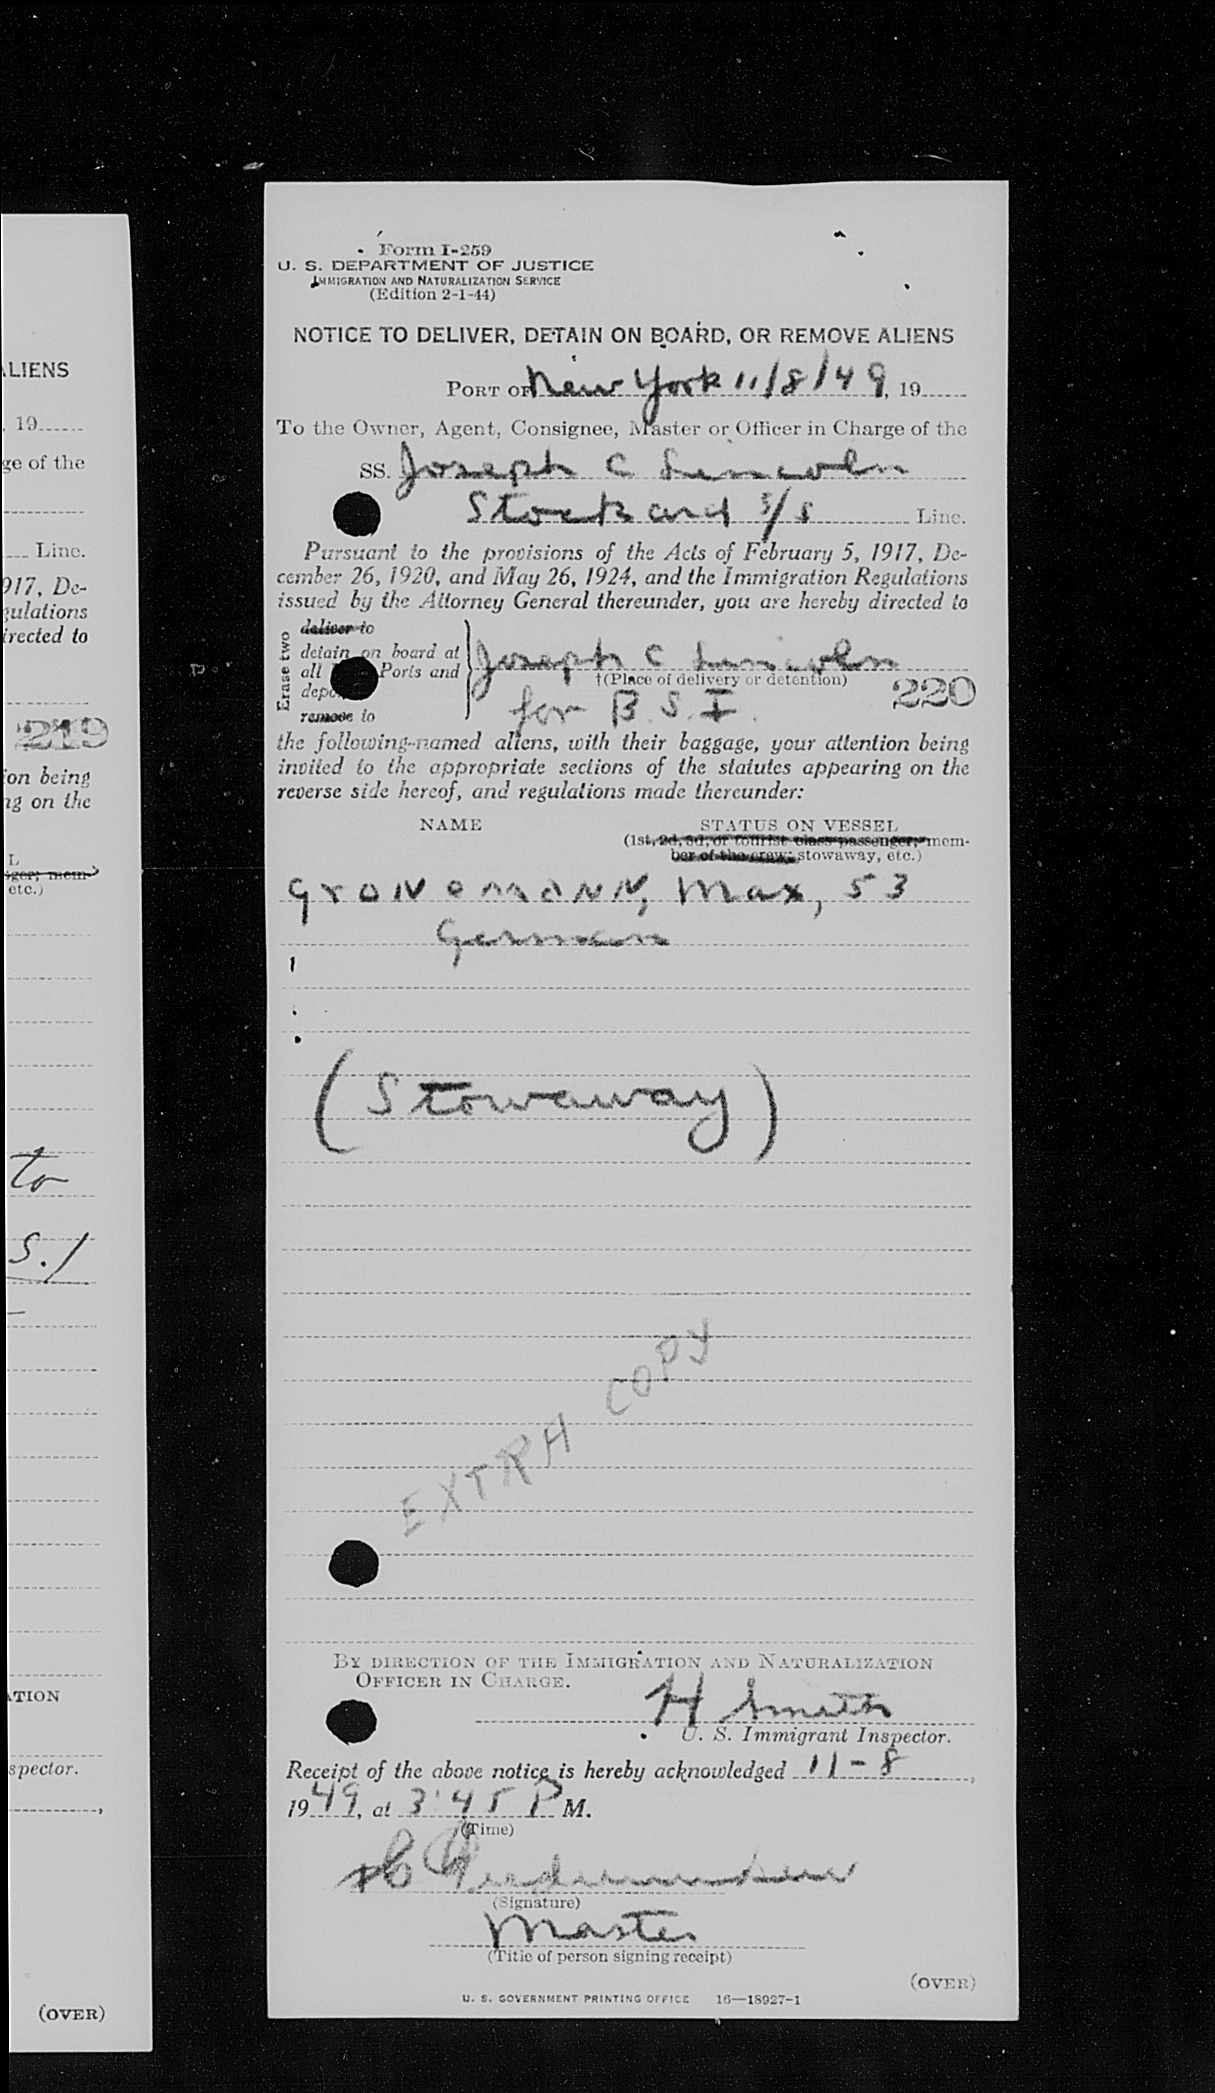 ALIENS
19
ge of the
Line.
917, De-
gulations
irected to
219
ion being
ng on the
L
ger; mem-
etc.)
to
S.
ATION
spector.
(OVER)
Form I-259
U. S. DEPARTMENT OF JUSTICE
IMMIGRATION AND NATURALIZATION SERVICE
(Edition 2-1-44)
NOTICE TO DELIVER, DETAIN ON BOARD, OR REMOVE ALIENS
PORT OF New York 11/8/49, 19
To the Owner, Agent, Consignee, Master or Officer in Charge of the
SS. Joseph C Lincoln
Stockard S/S Line.
Pursuant to the provisions of the Acts of February 5, 1917, De-
cember 26, 1920, and May 26, 1924, and the Immigration Regulations
issued by the Attorney General thereunder, you are hereby directed to
Erase two
deliver to
detain on board at
all Ports and
remove to
Joseph C Lincoln
†(Place of delivery or detention)
220
for B.S.I.
the following-named aliens, with their baggage, your attention being
invited to the appropriate sections of the statutes appearing on the
reverse side hereof, and regulations made thereunder:
NAME STATUS ON VESSEL
(1st, 2d, 3d, or tourist class passenger; mem-
ber of the crew; stowaway, etc.)
GRONEMANN, Max, 53
German
(Stowaway)
EXTRA COPY
BY DIRECTION OF THE IMMIGRATION AND NATURALIZATION
OFFICER IN CHARGE.
H Smith
U. S. Immigrant Inspector.
Receipt of the above notice is hereby acknowledged 11-8,
1949, at 3:45 P M.
(Time)
(Signature)
Master
(Title of person signing receipt)
(OVER)
U. S. GOVERNMENT PRINTING OFFICE 16—18927-1